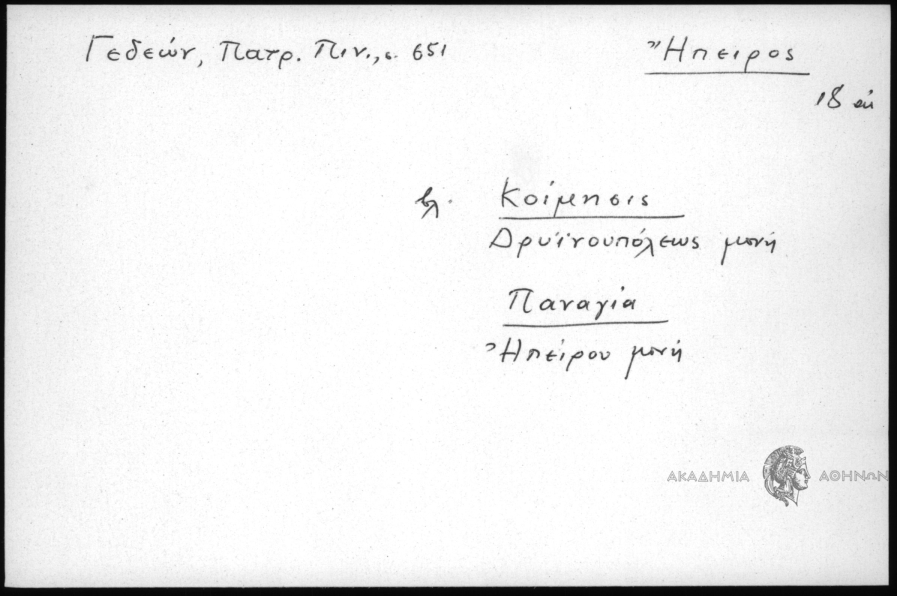 Γεδεών, Πατρ. Πιν., σ. 651
Ἤπειρος
18 αι
βλ. Κοίμησις
Δρυϊνουπόλεως μονή
Παναγία
Ἠπείρου μονή
ΑΚΑΔΗΜΙΑ ΑΘΗΝΩΝ